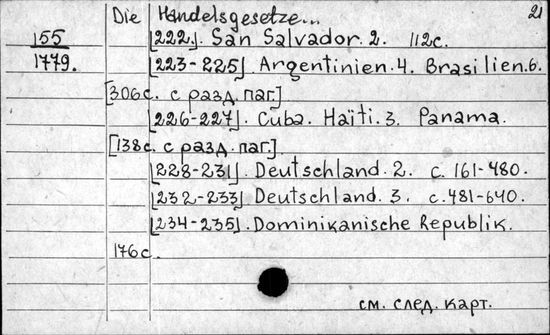 Die Handelsgesetze... 21
155 [222]. San Salvador. 2. 112c.
1779. [223-225]. Argentinien. 4. Brasilien. 6.
[306с. с разд. паг.]
[226-227]. Cuba. Haïti. 3. Panama.
[138с. с разд. паг.]
[228-231]. Deutschland. 2. с. 161-480.
[232-233]. Deutschland. 3. с. 481-640.
[234-235]. Dominikanische Republik.
176с.
см. след. карт.